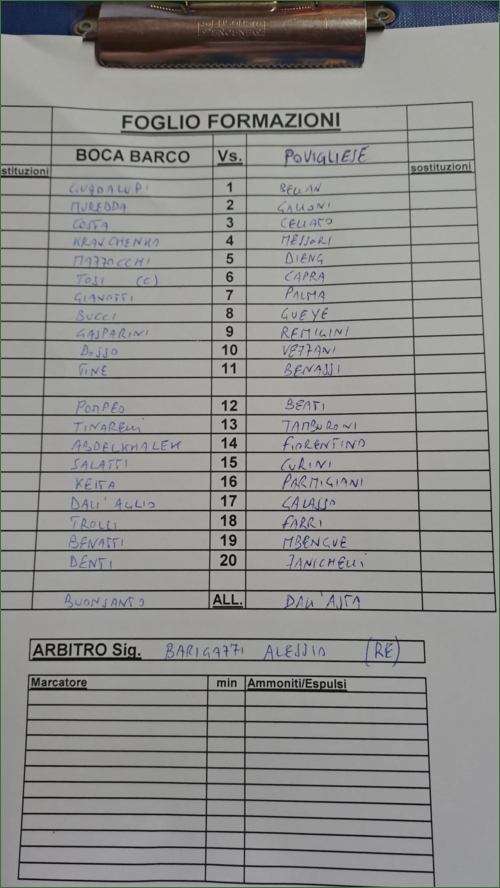 FOGLIO FORMAZIONI
BOCA BARCO Vs. POVIGLIESE
stituzioni sostituzioni
GUADALUPI 1 BELLAN
MUREDDA 2 GALLONI
COSTA 3 CELLATO
KRAVCHENKO 4 MESSORI
MAZZOCCHI 5 DIENG
TOSI (C) 6 CAPRA
GIANOTTI 7 PALMA
BUCCI 8 GUEYE
GASPARINI 9 REMIGINI
DOSSO 10 VEZZANI
TINE 11 BENASSI
POMPEO 12 BEATI
TINARELLI 13 TAMBURONI
ABDELKHALEK 14 FIORENTINO
SALATTI 15 CURINI
KEITA 16 PARMIGIANI
DALL'AGLIO 17 GALASSO
TROLLI 18 FARRI
BENATTI 19 MBENGUE
DENTI 20 ZANICHELLI
BUONSANTO ALL. DALL'ASTA
ARBITRO Sig. BARIGAZZI ALESSIO (RE)
Marcatore min Ammoniti/Espulsi